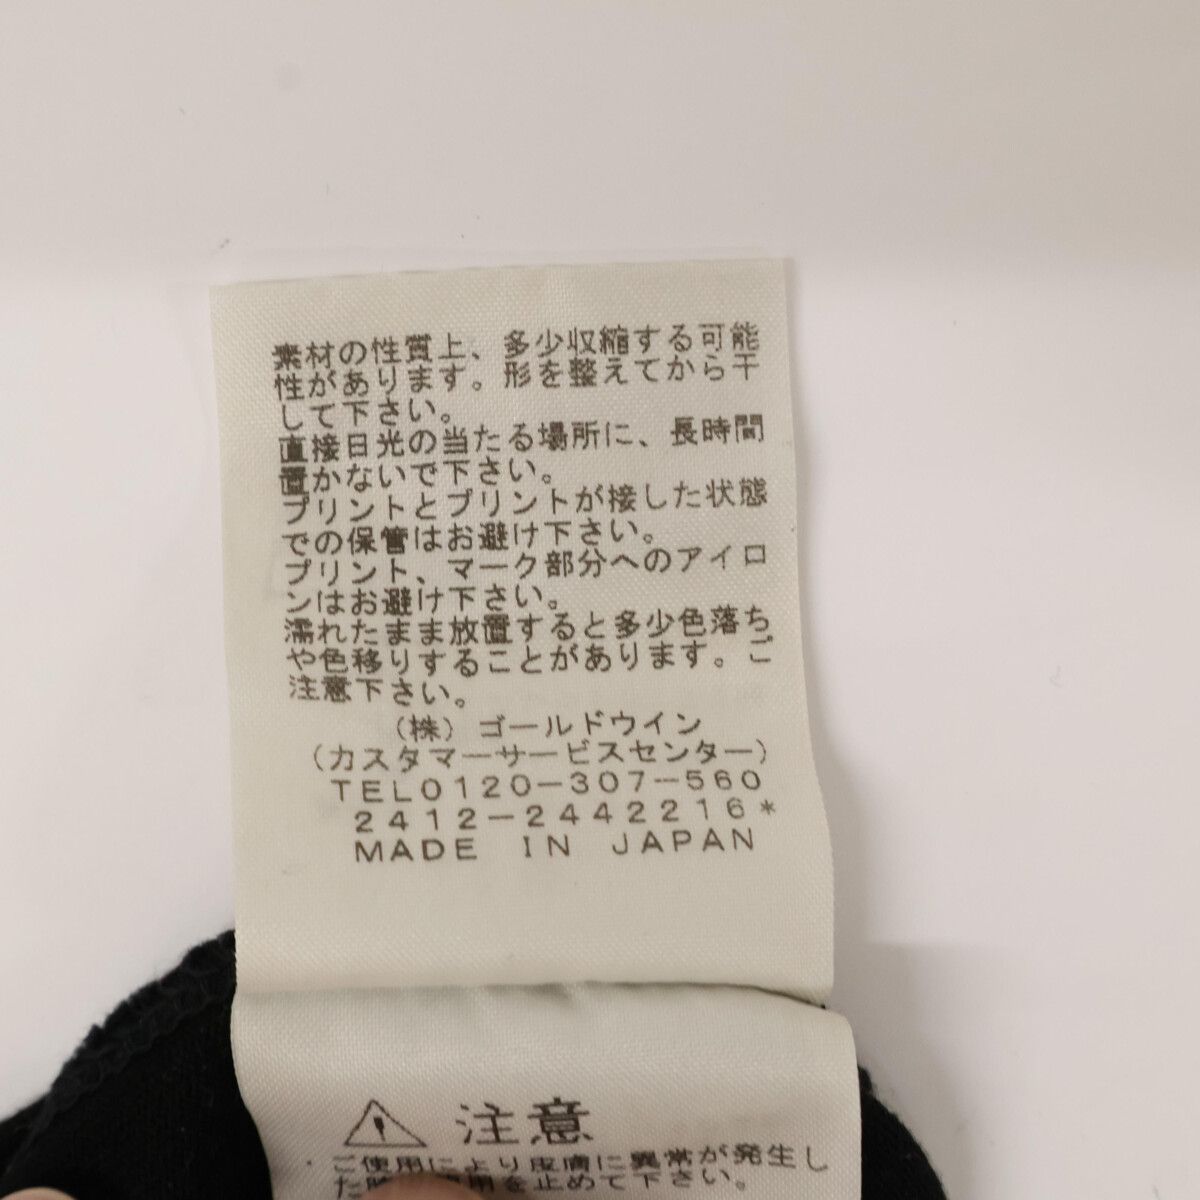 素材の性質上、多少収縮する可能
性があります。形を整えてから干
して下さい。
直接日光の当たる場所に、長時間
置かないで下さい。
プリントとプリントが接した状態
での保管はお避け下さい。
プリント、マーク部分へのアイロ
ンはお避け下さい。
濡れたまま放置すると多少色落ち
や色移りすることがあります。ご
注意下さい。
(株)ゴールドウイン
(カスタマーサービスセンター)
TEL0120-307-560
2412-2442216*
MADE IN JAPAN
注意
・ご使用により皮膚に異常が発生し
た時 使用を止めて下さい。